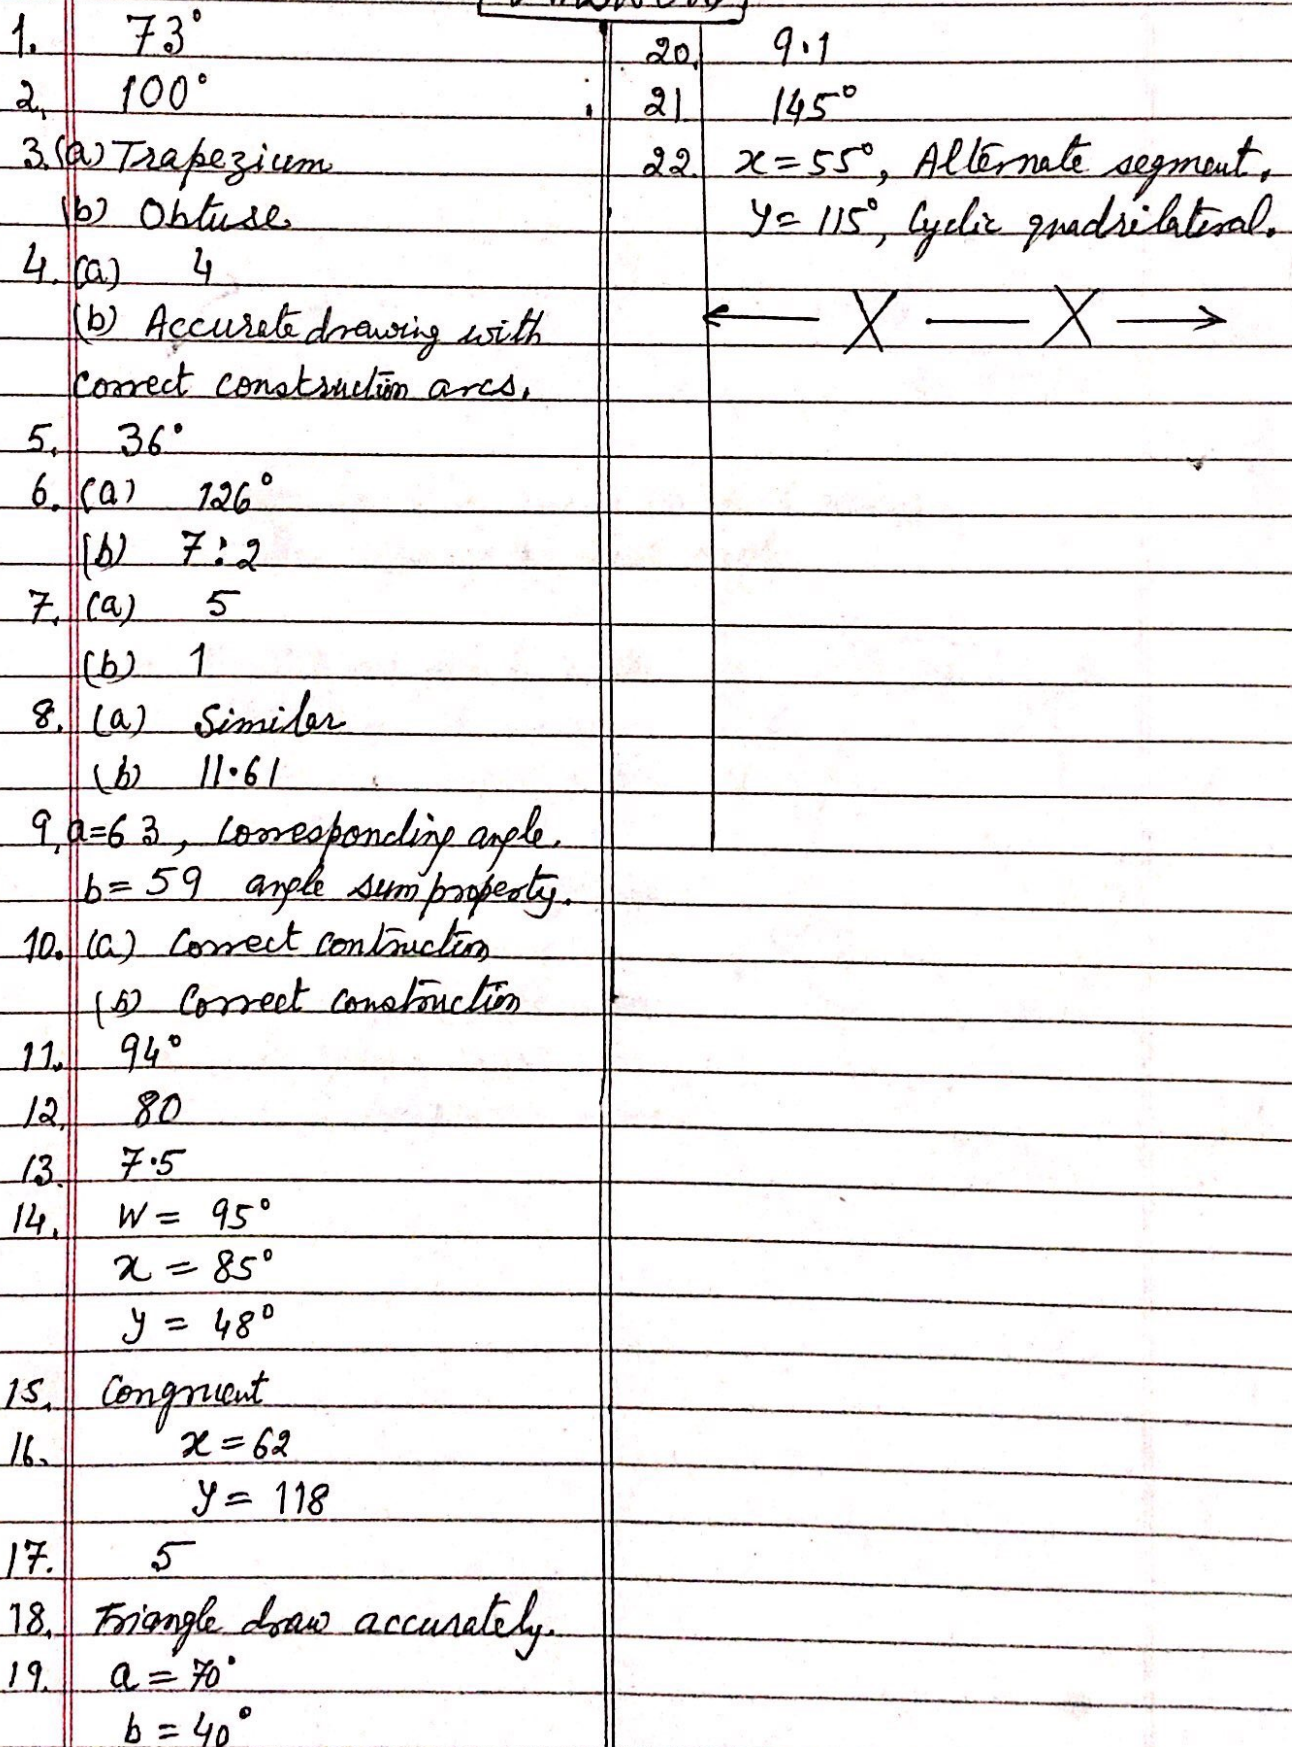 Answers
1. 73°
2. 100°
3. (a) Trapezium
(b) Obtuse
4. (a) 4
(b) Accurate drawing with
correct construction arcs.
5. 36°
6. (a) 126°
(b) 7:2
7. (a) 5
(b) 1
8. (a) Similar
(b) 11.61
9. a=63, Corresponding angle.
b=59 angle sum property.
10. (a) Correct contruction
(b) Correct construction
11. 94°
12. 80
13. 7.5
14. W = 95°
x = 85°
y = 48°
15. Congruent
16. x = 62
y = 118
17. 5
18. Triangle draw accurately.
19. a = 70°
b = 40°
20. 9.1
21 145°
22. x = 55°, Alternate segment.
y = 115°, Cyclic quadrilateral.
X — X